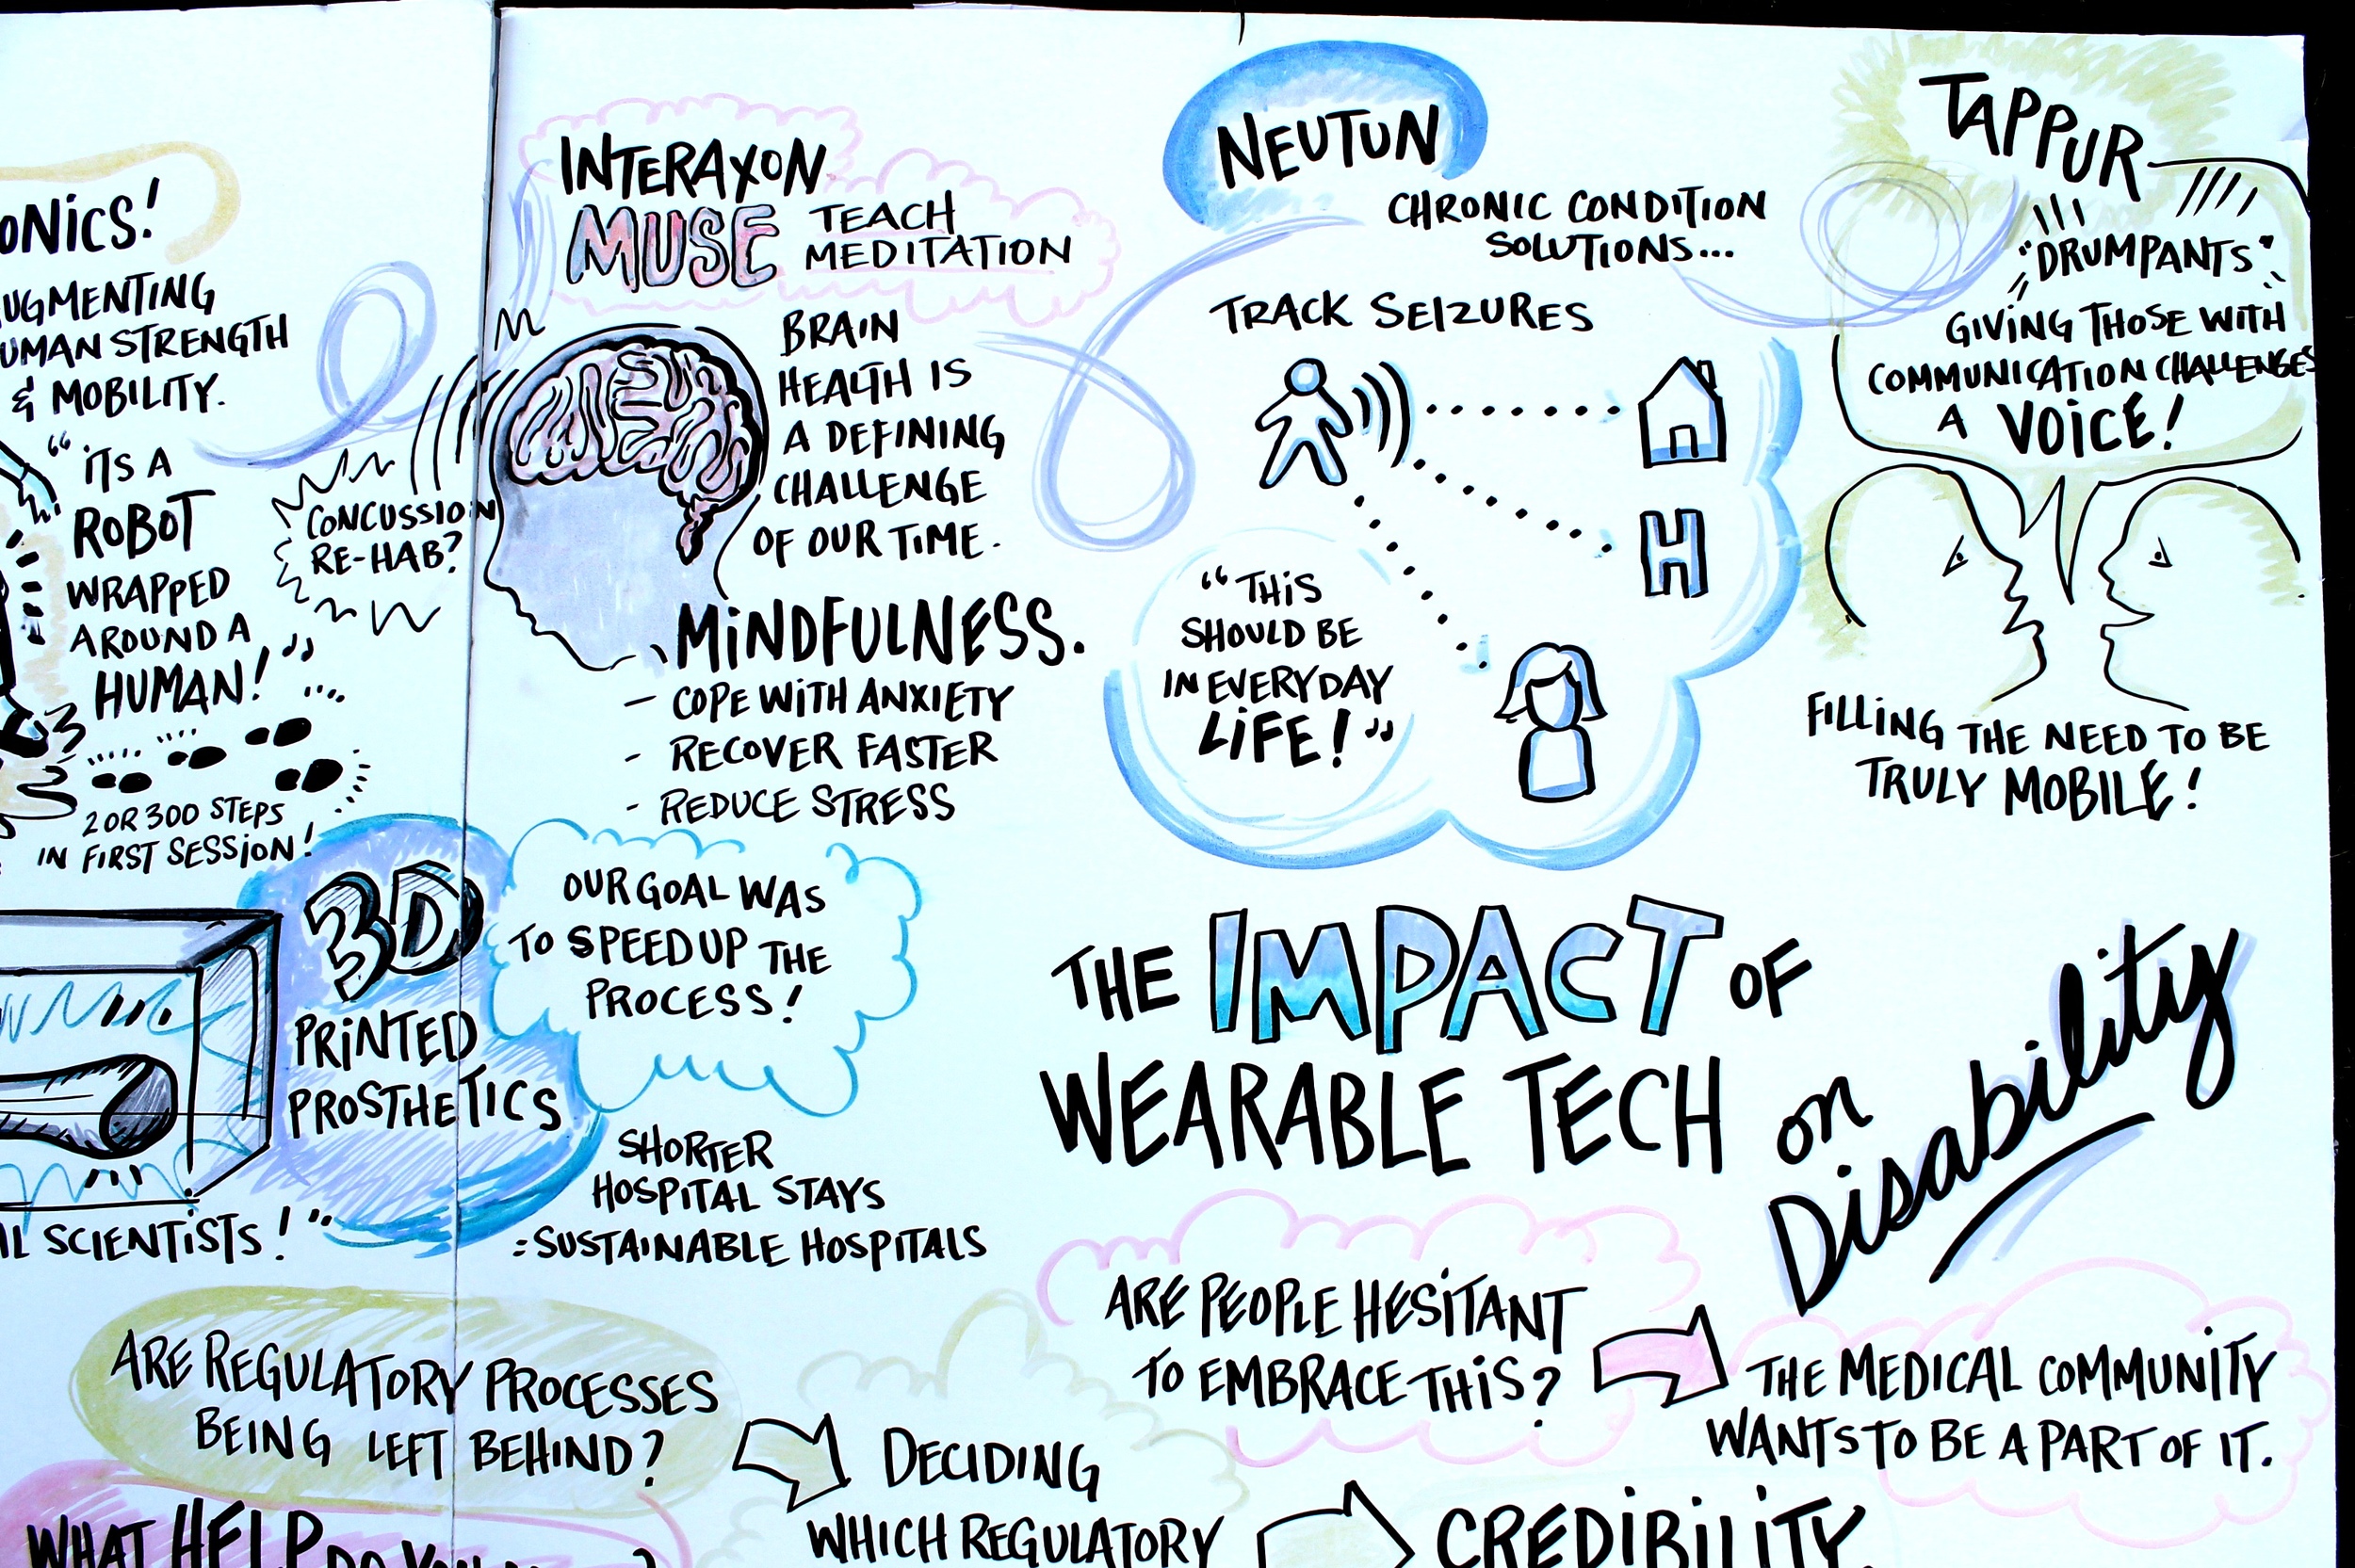 ONICS!
UGMENTING
UMAN STRENGTH
& MOBILITY.
"ITS A
ROBOT
WRAPPED
AROUND A
HUMAN!"
2 OR 300 STEPS
IN FIRST SESSION!
CONCUSSION
RE-HAB?
INTERAXON
MUSE TEACH
MEDITATION
BRAIN
HEALTH IS
A DEFINING
CHALLENGE
OF OUR TIME.
MINDFULNESS.
- COPE WITH ANXIETY
- RECOVER FASTER
- REDUCE STRESS
NEUTUN
CHRONIC CONDITION
SOLUTIONS...
TRACK SEIZURES
H
"THIS
SHOULD BE
IN EVERYDAY
LIFE!"
TAPPUR
"DRUMPANTS"
GIVING THOSE WITH
COMMUNICATION CHALLENGES
A VOICE!
FILLING THE NEED TO BE
TRULY MOBILE!
3D
PRINTED
PROSTHETICS
OUR GOAL WAS
TO SPEED UP THE
PROCESS!
SHORTER
HOSPITAL STAYS
=SUSTAINABLE HOSPITALS
L SCIENTISTS!"
THE IMPACT OF
WEARABLE TECH
on
Disability
ARE PEOPLE HESITANT
TO EMBRACE THIS?
THE MEDICAL COMMUNITY
WANTS TO BE A PART OF IT.
ARE REGULATORY PROCESSES
BEING LEFT BEHIND?
DECIDING
WHICH REGULATORY
CREDIBILITY
WHAT HELP DO YOU